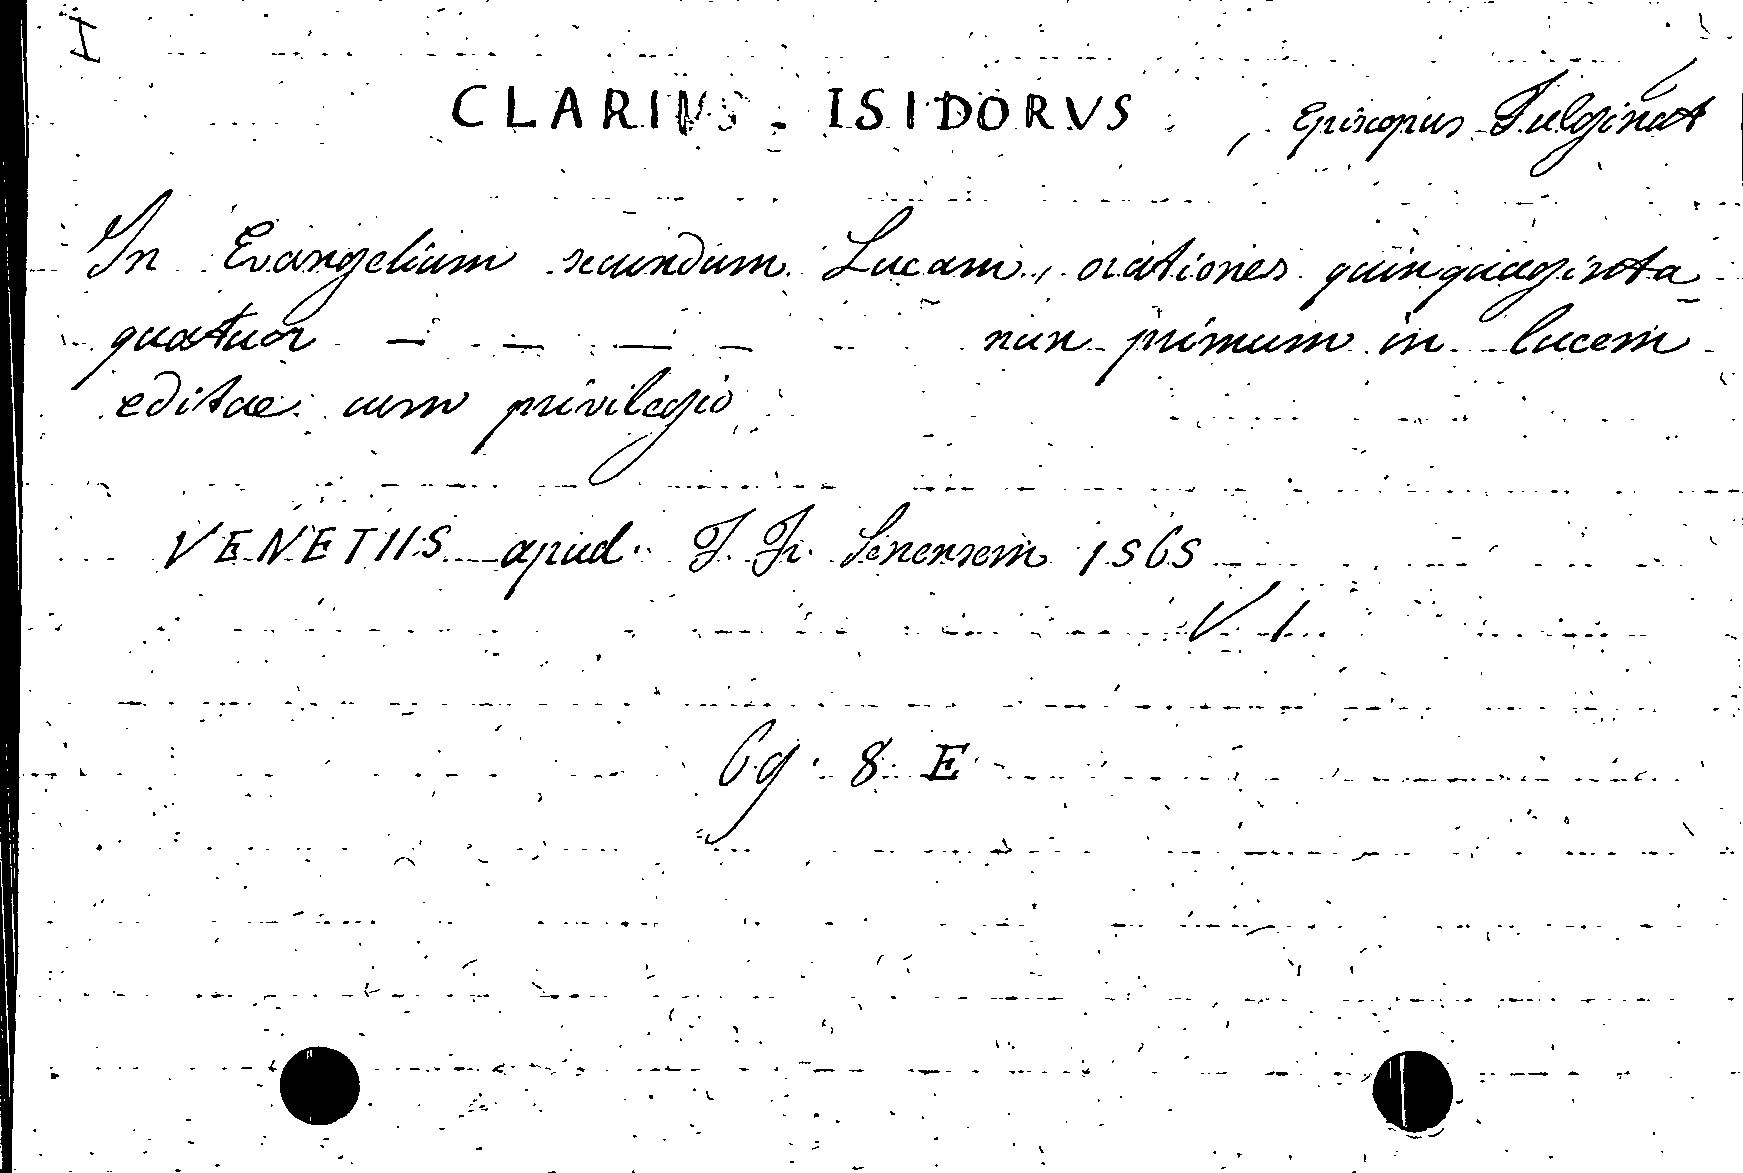 I
CLARIVS - ISIDORVS, Episcopus Fulginat
In Evangelium secundum Lucam, orationes quinquaginta
quatuor — — — — nun primum in lucem
editae cum privilegio
VENETIIS apud F. Fr. Senensem 1565
V. 1
69. 8 E